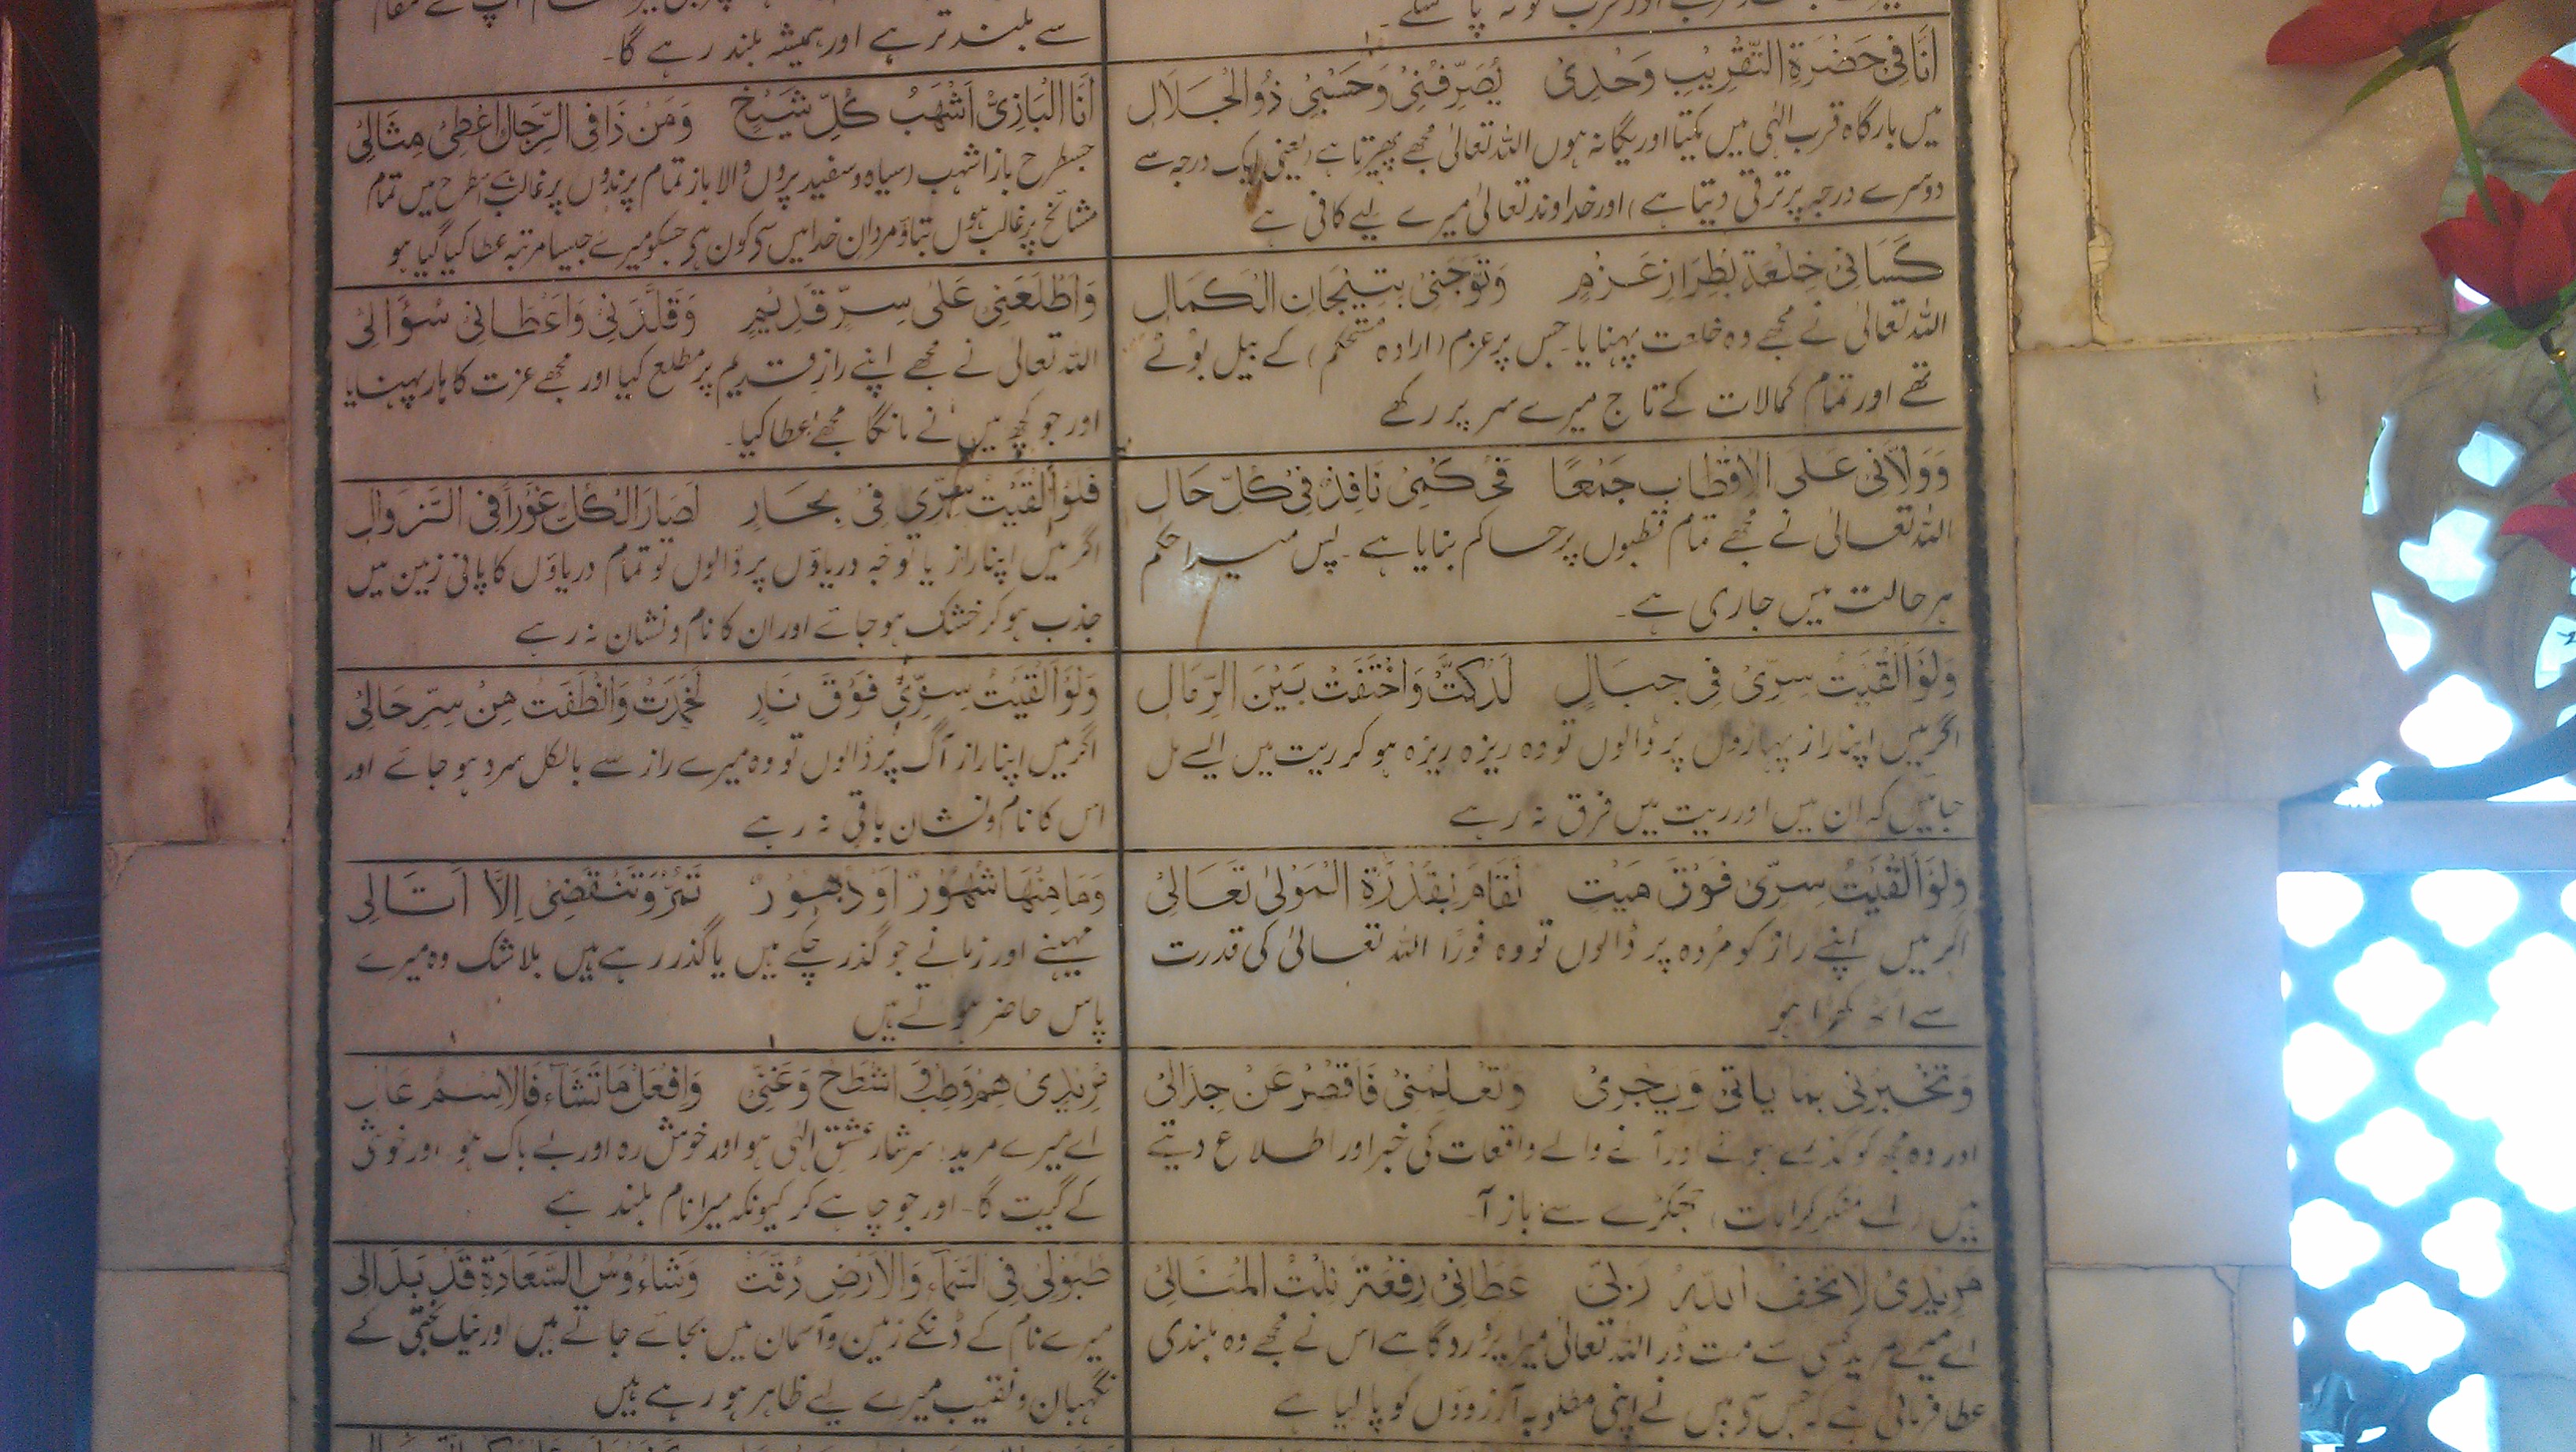 سے بلند تر ہے اور ہمیشہ بلند رہے گا۔
اَنَا فِیْ حَضْرَۃِ التَّقْرِیْبِ وَحْدِیْ یُصَرِّفُنِیْ وَحَسْبِیْ ذُوالْجَلَالِ
میں بارگاہ قرب الٰہی میں یکتا اور یگانہ ہوں اللہ تعالیٰ مجھے پھیرتا ہے (یعنی ایک درجہ سے
دوسرے درجہ پر ترقی دیتا ہے) اور خداوند تعالیٰ میرے لیے کافی ہے
اَنَا الْبَازِیُّ اَشْهَبُ کُلِّ شَیْخٍ وَمَنْ ذَا فِی الرِّجَالِ اُعْطِیَ مِثَالِیْ
جسطرح باز اشہب (سیاہ و سفید پروں والا باز تمام پرندوں پر غالب ہے اسطرح میں تمام
مشائخ پر غالب ہوں بتاؤ مردان خدا میں سے کون ہے جسکو میرے جیسا مرتبہ عطا کیا گیا ہو
کَسَانِیْ خِلْعَۃً بِطِرَازِ عَزْمٍ وَتَوَّجَنِیْ بِتِیْجَانِ الْکَمَالِ
اللہ تعالیٰ نے مجھے وہ خلعت پہنایا جس پر عزم (ارادہ مستحکم) کے بیل بوٹے
تھے اور تمام کمالات کے تاج میرے سر پر رکھے
وَاَطْلَعَنِیْ عَلٰی سِرٍّ قَدِیْمٍ وَقَلَّدَنِیْ وَاَعْطَانِیْ سُؤَالِیْ
اللہ تعالیٰ نے مجھے اپنے راز قدیم پر مطلع کیا اور مجھے عزت کا ہار پہنایا
اور جو کچھ میں نے مانگا مجھے عطا کیا۔
وَوَلَّانِیْ عَلَی الْاَقْطَابِ جَمْعًا فَحُکْمِیْ نَافِذٌ فِیْ کُلِّ حَالِ
اللہ تعالیٰ نے مجھے تمام قطبوں پر حاکم بنایا ہے۔ پس میرا حکم
ہر حالت میں جاری ہے۔
فَلَوْ اَلْقَیْتُ سِرِّیْ فِیْ بِحَارٍ لَصَارَ الْکُلُّ غَوْرًا فِی الزَّوَالِ
اگر میں اپنا راز یا توجہ دریاؤں پر ڈالوں تو تمام دریاؤں کا پانی زمین میں
جذب ہو کر خشک ہو جائے اور ان کا نام و نشان نہ رہے
وَلَوْ اَلْقَیْتُ سِرِّیْ فِیْ جِبَالٍ لَدُکَّتْ وَاخْتَفَتْ بَیْنَ الرِّمَالِ
اگر میں اپنا راز پہاڑوں پر ڈالوں تو وہ ریزہ ریزہ ہو کر ریت میں ایسے مل
جائیں کہ ان میں اور ریت میں فرق نہ رہے
وَلَوْ اَلْقَیْتُ سِرِّیْ فَوْقَ نَارٍ لَخَمِدَتْ وَانْطَفَتْ مِنْ سِرِّ حَالِیْ
اگر میں اپنا راز آگ پر ڈالوں تو وہ میرے راز سے بالکل سرد ہو جائے اور
اس کا نام و نشان باقی نہ رہے
وَلَوْ اَلْقَیْتُ سِرِّیْ فَوْقَ مَیْتٍ لَقَامَ بِقُدْرَۃِ الْمَوْلٰی تَعَالِیْ
اگر میں اپنے راز کو مردہ پر ڈالوں تو وہ فورًا اللہ تعالیٰ کی قدرت
سے اٹھ کھڑا ہو
وَمَا مِنْهَا شُهُوْرٌ اَوْ دُهُوْرٌ تَمُرُّ وَتَنْقَضِیْ اِلَّا اَتَالِیْ
مہینے اور زمانے جو گذر چکے ہیں یا گذر رہے ہیں بلا شک وہ میرے
پاس حاضر ہوتے ہیں
وَتُخْبِرُنِیْ بِمَا یَاتِیْ وَیَجْرِیْ وَتُعْلِمُنِیْ فَاَقْصِرْ عَنْ جِدَالِیْ
اور وہ مجھ کو گذرے ہوئے اور آنے والے واقعات کی خبر اور اطلاع دیتے
ہیں (اے منکر کرامات) جھگڑے سے باز آ۔
مُرِیْدِیْ هِمْ وَطِبْ وَاشْطَحْ وَغَنِّیْ وَافْعَلْ مَا تَشَآءُ فَالْاِسْمُ عَالِ
اے میرے مرید: سرشار عشق الٰہی ہو اور خوش رہ اور بے باک ہو اور خوشی
کے گیت گا۔ اور جو چاہے کر کیونکہ میرا نام بلند ہے
مُرِیْدِیْ لَا تَخَفْ اَللّٰهُ رَبِّیْ عَطَانِیْ رِفْعَۃً نِلْتُ الْمَنَالِیْ
اے میرے مرید کسی سے مت ڈر اللہ تعالیٰ میرا پروردگار ہے اس نے مجھے وہ بلندی
عطا فرمائی ہے کہ جس سے میں نے اپنی مطلوبہ آرزوؤں کو پا لیا ہے
طُبُوْلِیْ فِی السَّمَآءِ وَالْاَرْضِ دُقَّتْ وَشَاءُوْسُ السَّعَادَۃِ قَدْ بَدَالِیْ
میرے نام کے ڈنکے زمین و آسمان میں بجائے جاتے ہیں اور نیک بختی کے
نگہبان و نقیب میرے لیے ظاہر ہو رہے ہیں